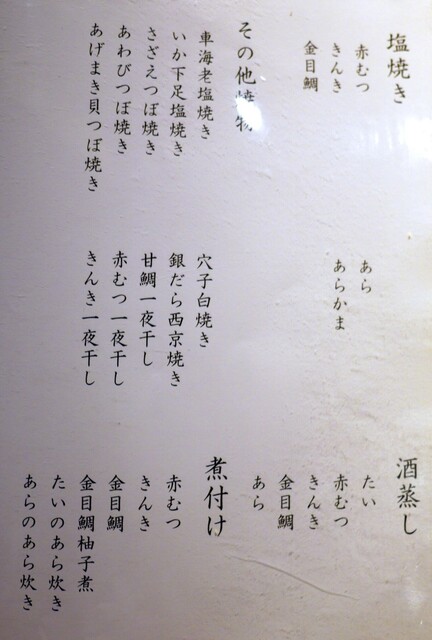 塩焼き
赤むつ
きんき
金目鯛
あら
あらかま
その他焼物
車海老塩焼き
いか下足塩焼き
さざえつぼ焼き
あわびつぼ焼き
あげまき貝つぼ焼き
穴子白焼き
銀だら西京焼き
甘鯛一夜干し
赤むつ一夜干し
きんき一夜干し
酒蒸し
たい
赤むつ
きんき
金目鯛
あら
煮付け
赤むつ
きんき
金目鯛
金目鯛柚子煮
たいのあら炊き
あらのあら炊き